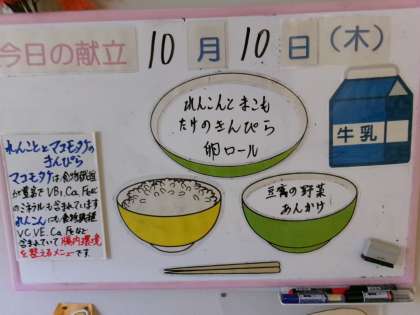 今日の献立 10月10日(木)
れんこんとまこも
たけのきんぴら
卵ロール
牛乳
豆腐の野菜
あんかけ
れんことマコモタケの
きんぴら
マコモタケは食物繊維
が豊富でVB1,Ca,Feなど
のミネラルも含まれています
れんこんにも食物繊維
VC VE Ca Feなど
含まれていて腸内環境
を整えるメニューです